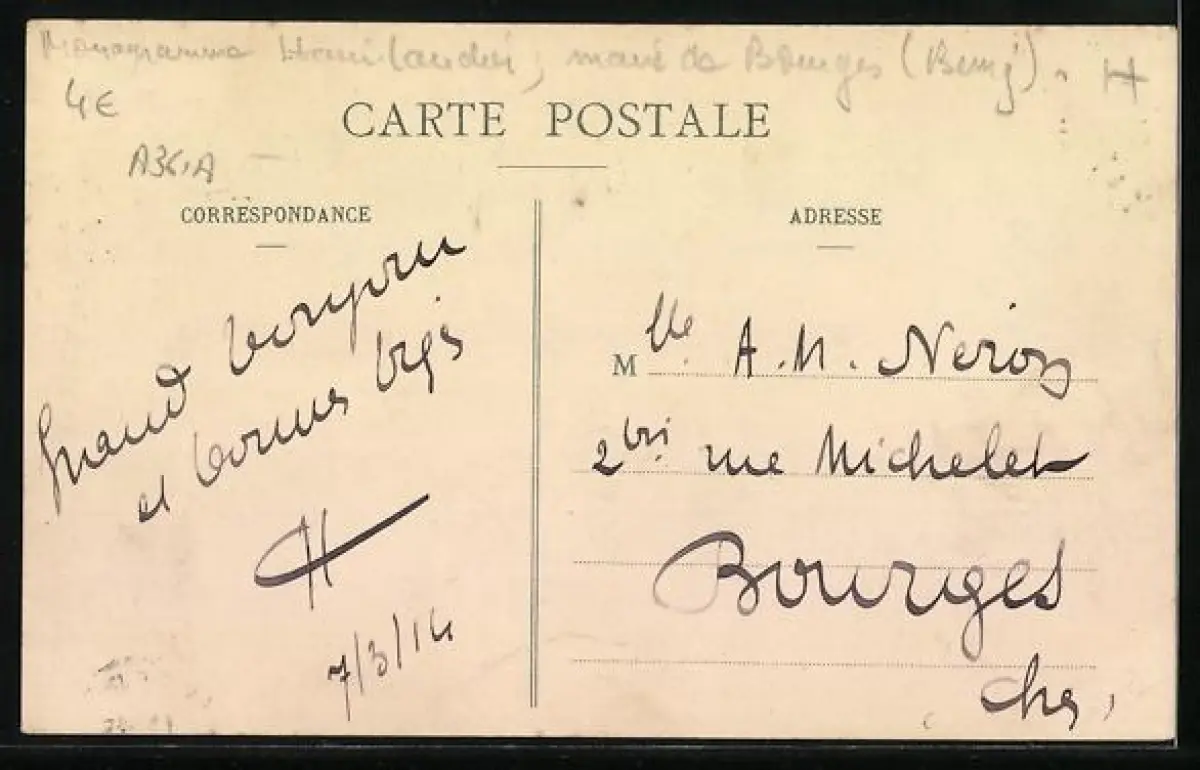 Monogramme Henri Laudier, maire de Bourges (Berry). H
4€
CARTE POSTALE
A36.A
CORRESPONDANCE
Grand bonjour
et bonnes
H
7/3/14
ADRESSE
Mlle. A.M. Néron
2 bis rue Michelet
Bourges
Cher